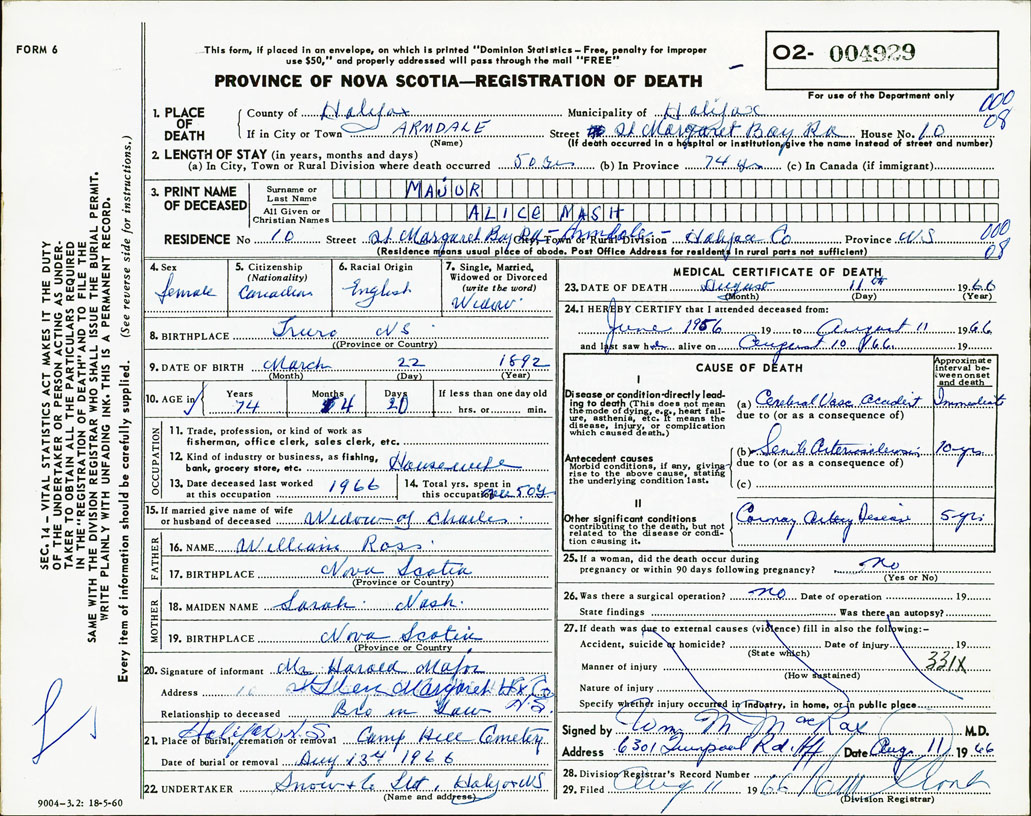 FORM 6
This form, if placed in an envelope, on which is printed "Dominion Statistics – Free, penalty for improper
use $50," and properly addressed will pass through the mail "FREE"
O2- 004929
PROVINCE OF NOVA SCOTIA—REGISTRATION OF DEATH
For use of the Department only
1. PLACE OF DEATH
County of Halifax Municipality of Halifax 000
08
If in City or Town ARMDALE Street St Margaret Bay Rd House No. 10
(Name) (If death occurred in a hospital or institution, give the name instead of street and number)
2. LENGTH OF STAY (in years, months and days)
(a) In City, Town or Rural Division where death occurred 50 yrs (b) In Province 74 yrs (c) In Canada (if immigrant)
3. PRINT NAME OF DECEASED
Surname or Last Name MAJOR
All Given or Christian Names ALICE MASH
RESIDENCE No 10 Street St Margaret Bay Rd – Armdale – City, Town or Rural Division Halifax Co Province N.S 000
08
(Residence means usual place of abode. Post Office Address for residents in rural parts not sufficient)
4. Sex female
5. Citizenship (Nationality) Canadian
6. Racial Origin English
7. Single, Married, Widowed or Divorced (write the word) Widow
8. BIRTHPLACE Truro NS
(Province or Country)
9. DATE OF BIRTH March 22 1892
(Month) (Day) (Year)
10. AGE in Years 74 Months 4 Days 20 If less than one day old hrs. or min.
OCCUPATION
11. Trade, profession, or kind of work as
fisherman, office clerk, sales clerk, etc.
12. Kind of industry or business, as fishing,
bank, grocery store, etc. Housewife
13. Date deceased last worked
at this occupation 1966
14. Total yrs. spent in
this occupation over 50 y
15. If married give name of wife
or husband of deceased Widow of Charles
FATHER
16. NAME William Ross
17. BIRTHPLACE Nova Scotia
(Province or Country)
MOTHER
18. MAIDEN NAME Sarah Nash
19. BIRTHPLACE Nova Scotia
(Province or Country)
20. Signature of informant Mr Harold Major
Address Glen Margaret Hx Co N.S
Relationship to deceased Bro in Law
Halifax N.S.
21. Place of burial, cremation or removal Camp Hill Cemetery
Date of burial or removal Aug 13th 1966
22. UNDERTAKER Snow & Co Ltd, Halifax NS
(Name and address)
9004–3.2: 18-5-60
MEDICAL CERTIFICATE OF DEATH
23. DATE OF DEATH August 11th 1966
(Month) (Day) (Year)
24. I HEREBY CERTIFY that I attended deceased from:
June 1956 19 to August 11 1966
and last saw her alive on August 10 /66 19
CAUSE OF DEATH
Approximate interval between onset and death
I
Disease or condition directly leading to death (This does not mean the mode of dying, e.g., heart failure, asthenia, etc. It means the disease, injury, or complication which caused death.)
(a) Cerebral Vasc Accident Immediate
due to (or as a consequence of)
Antecedent causes
Morbid conditions, if any, giving rise to the above cause, stating the underlying condition last.
(b) Senile Arteriosclerosis 10 yrs
due to (or as a consequence of)
(c)
II
Other significant conditions
contributing to the death, but not related to the disease or condition causing it.
Coronary Artery Disease 5 yrs
25. If a woman, did the death occur during
pregnancy or within 90 days following pregnancy? no
(Yes or No)
26. Was there a surgical operation? no Date of operation 19
State findings Was there an autopsy?
27. If death was due to external causes (violence) fill in also the following:–
Accident, suicide or homicide? Date of injury 19
(State which)
331X
Manner of injury
(How sustained)
Nature of injury
Specify whether injury occurred in industry, in home, or in public place
Signed by Wm M MacRae M.D.
Address 6301 Liverpool Rd. Hfx Date Aug. 11 1966
28. Division Registrar's Record Number
29. Filed Aug 11 1966
(Division Registrar)
SEC. 14 – VITAL STATISTICS ACT MAKES IT THE DUTY
OF THE UNDERTAKER OR PERSON ACTING AS UNDERTAKER TO OBTAIN ALL THE PARTICULARS REQUIRED
IN THE "REGISTRATION OF DEATH" AND TO FILE THE
SAME WITH THE DIVISION REGISTRAR WHO SHALL ISSUE THE BURIAL PERMIT.
WRITE PLAINLY WITH UNFADING INK. THIS IS A PERMANENT RECORD.
Every item of information should be carefully supplied. (See reverse side for instructions.)